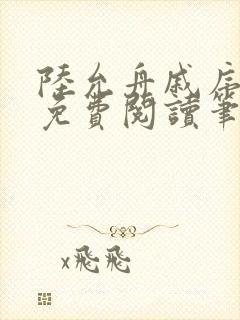 陸允舟戚虎
免費閱讀筆
x飛飛